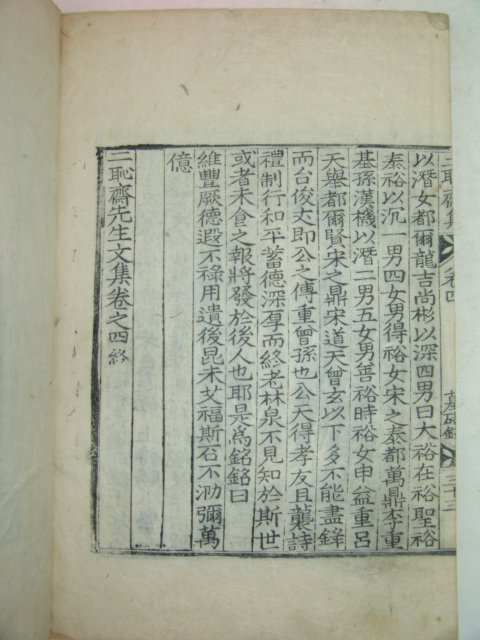 三恥齋集 卷四 墓碣銘 三十二
以潛女都爾龍吉尚彬以深四男曰大裕在裕聖裕
泰裕以沉一男四女男得裕女宋之泰都萬鼎李重
基孫漢機以潛二男五女男善裕時裕女申益重呂
天舉都爾賢宋之鼎宋道天曾玄以下多不能盡錄
而台俊夾即公之傳重曾孫也公天得孝友且襲詩
禮制行和平蓄德深厚而終老林泉不見知於斯世
或者未食之報將發於後人也耶是爲銘銘曰
維豐厥德遐不祿用遺後昆未艾福斯石不泐彌萬
億
三恥齋先生文集卷之四終